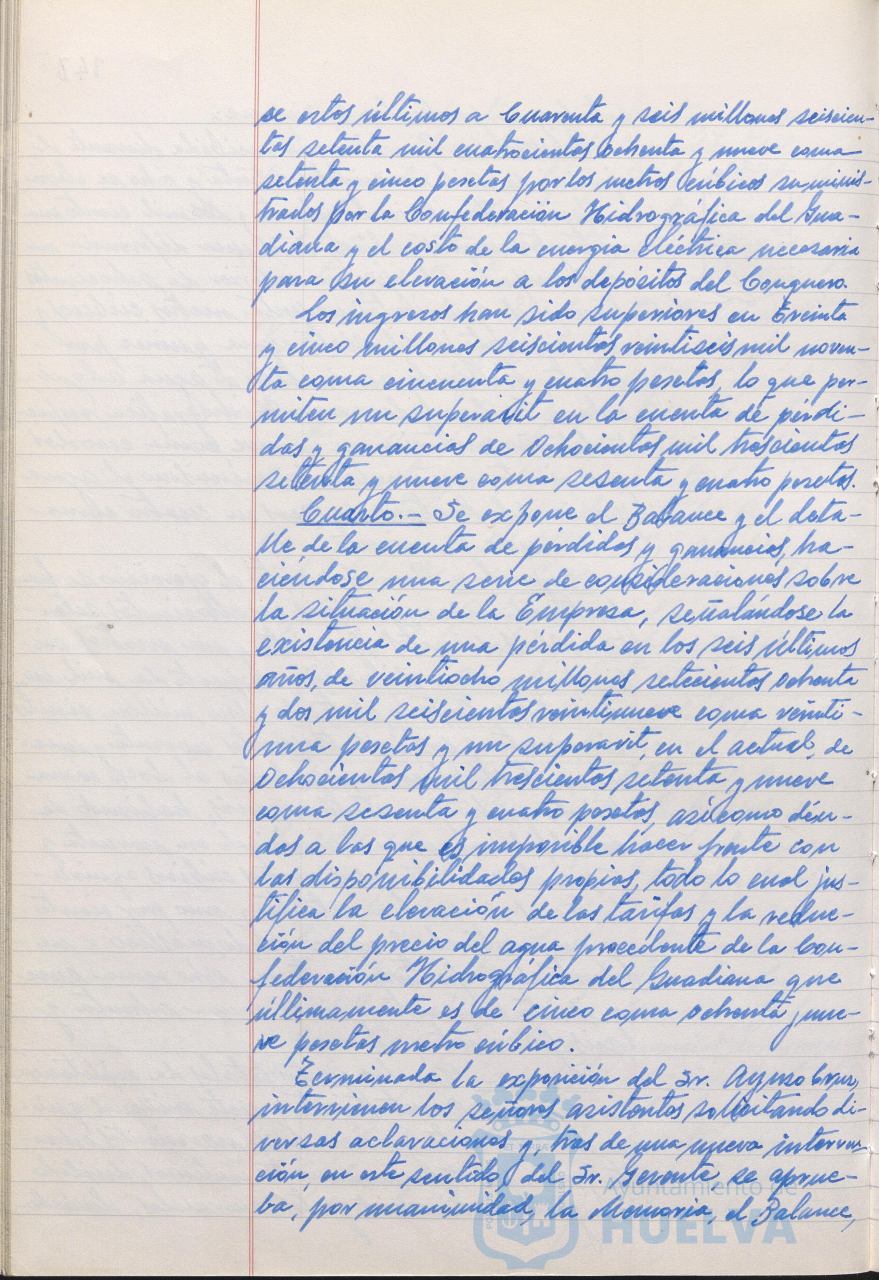 se estos últimos a Cuarenta y seis millones seiscien-
tas setenta mil cuatrocientas ochenta y nueve coma
setenta y cinco pesetas por los metros cúbicos suminis-
trados por la Confederación Hidrográfica del Gua-
diana y el costo de la energía eléctrica necesaria
para su elevación a los depósitos del Conquero.
Los ingresos han sido superiores en Treinta
y cinco millones seiscientas veintiseis mil noven-
ta coma cincuenta y cuatro pesetas, lo que per-
miten un superávit en la cuenta de pérdi-
das y ganancias de Ochocientas mil trescientas
setenta y nueve coma sesenta y cuatro pesetas.
Cuarto.- Se expone el Balance y el deta-
lle de la cuenta de pérdidas y ganancias, ha-
ciéndose una serie de consideraciones sobre
la situación de la Empresa, señalándose la
existencia de una pérdida en los seis últimos
años, de veintiocho millones setecientas ochenta
y dos mil seiscientas veintinueve coma veinti-
una pesetas y un superavit, en el actual, de
Ochocientas mil trescientas setenta y nueve
coma sesenta y cuatro pesetas, así como deu-
das a las que es imposible hacer frente con
las disponibilidades propias, todo lo cual jus-
tifica la elevación de las tarifas y la reduc-
ción del precio del agua procedente de la Con-
federación Hidrográfica del Guadiana que
últimamente es de cinco coma ochenta y nue-
ve pesetas metro cúbico.
Terminada la exposición del Sr. Ayuso Cruz,
intervienen los señores asistentes solicitando di-
versas aclaraciones y, tras de una nueva interven-
ción, en este sentido, del Sr. Gerente se aprue-
ba, por unanimidad, la Memoria, el Balance,
Ayuntamiento de
HUELVA